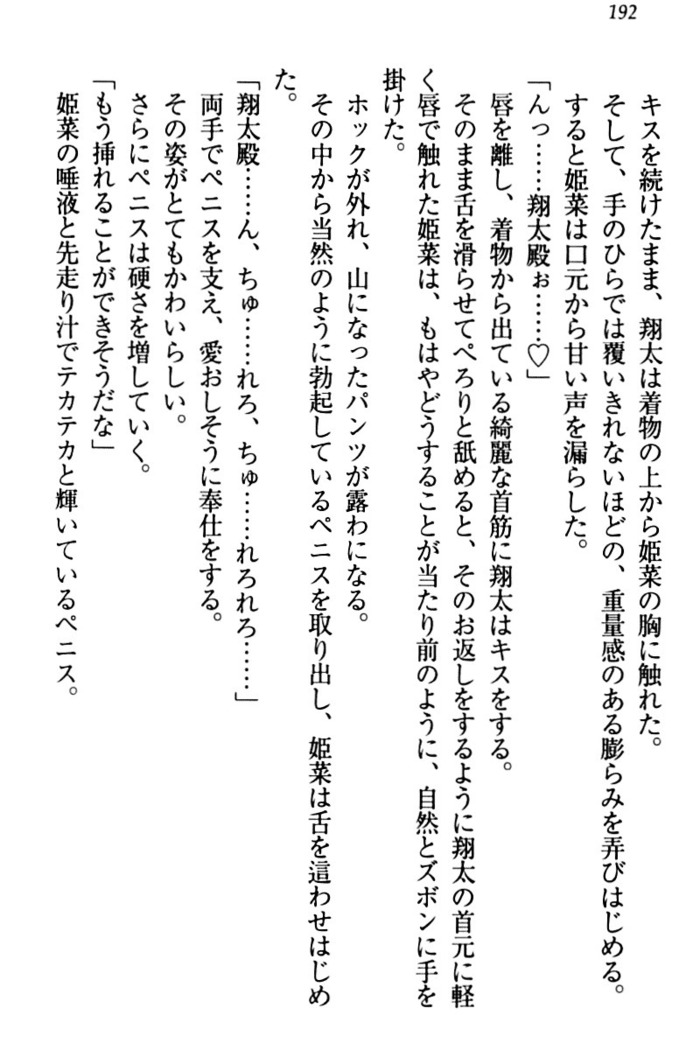 192
キスを続けたまま、翔太は着物の上から姫菜の胸に触れた。
そして、手のひらでは覆いきれないほどの、重量感のある膨らみを弄びはじめる。
すると姫菜は口元から甘い声を漏らした。
「んっ……翔太殿ぉ……♡」
唇を離し、着物から出ている綺麗な首筋に翔太はキスをする。
そのまま舌を滑らせてぺろりと舐めると、そのお返しをするように翔太の首元に軽
く唇で触れた姫菜は、もはやどうすることが当たり前のように、自然とズボンに手を
掛けた。
ホックが外れ、山になったパンツが露わになる。
その中から当然のように勃起しているペニスを取り出し、姫菜は舌を這わせはじめ
た。
「翔太殿……ん、ちゅ……れろ、ちゅ……れろれろ……」
両手でペニスを支え、愛おしそうに奉仕をする。
その姿がとてもかわいらしい。
さらにペニスは硬さを増していく。
「もう挿れることができそうだな」
姫菜の唾液と先走り汁でテカテカと輝いているペニス。